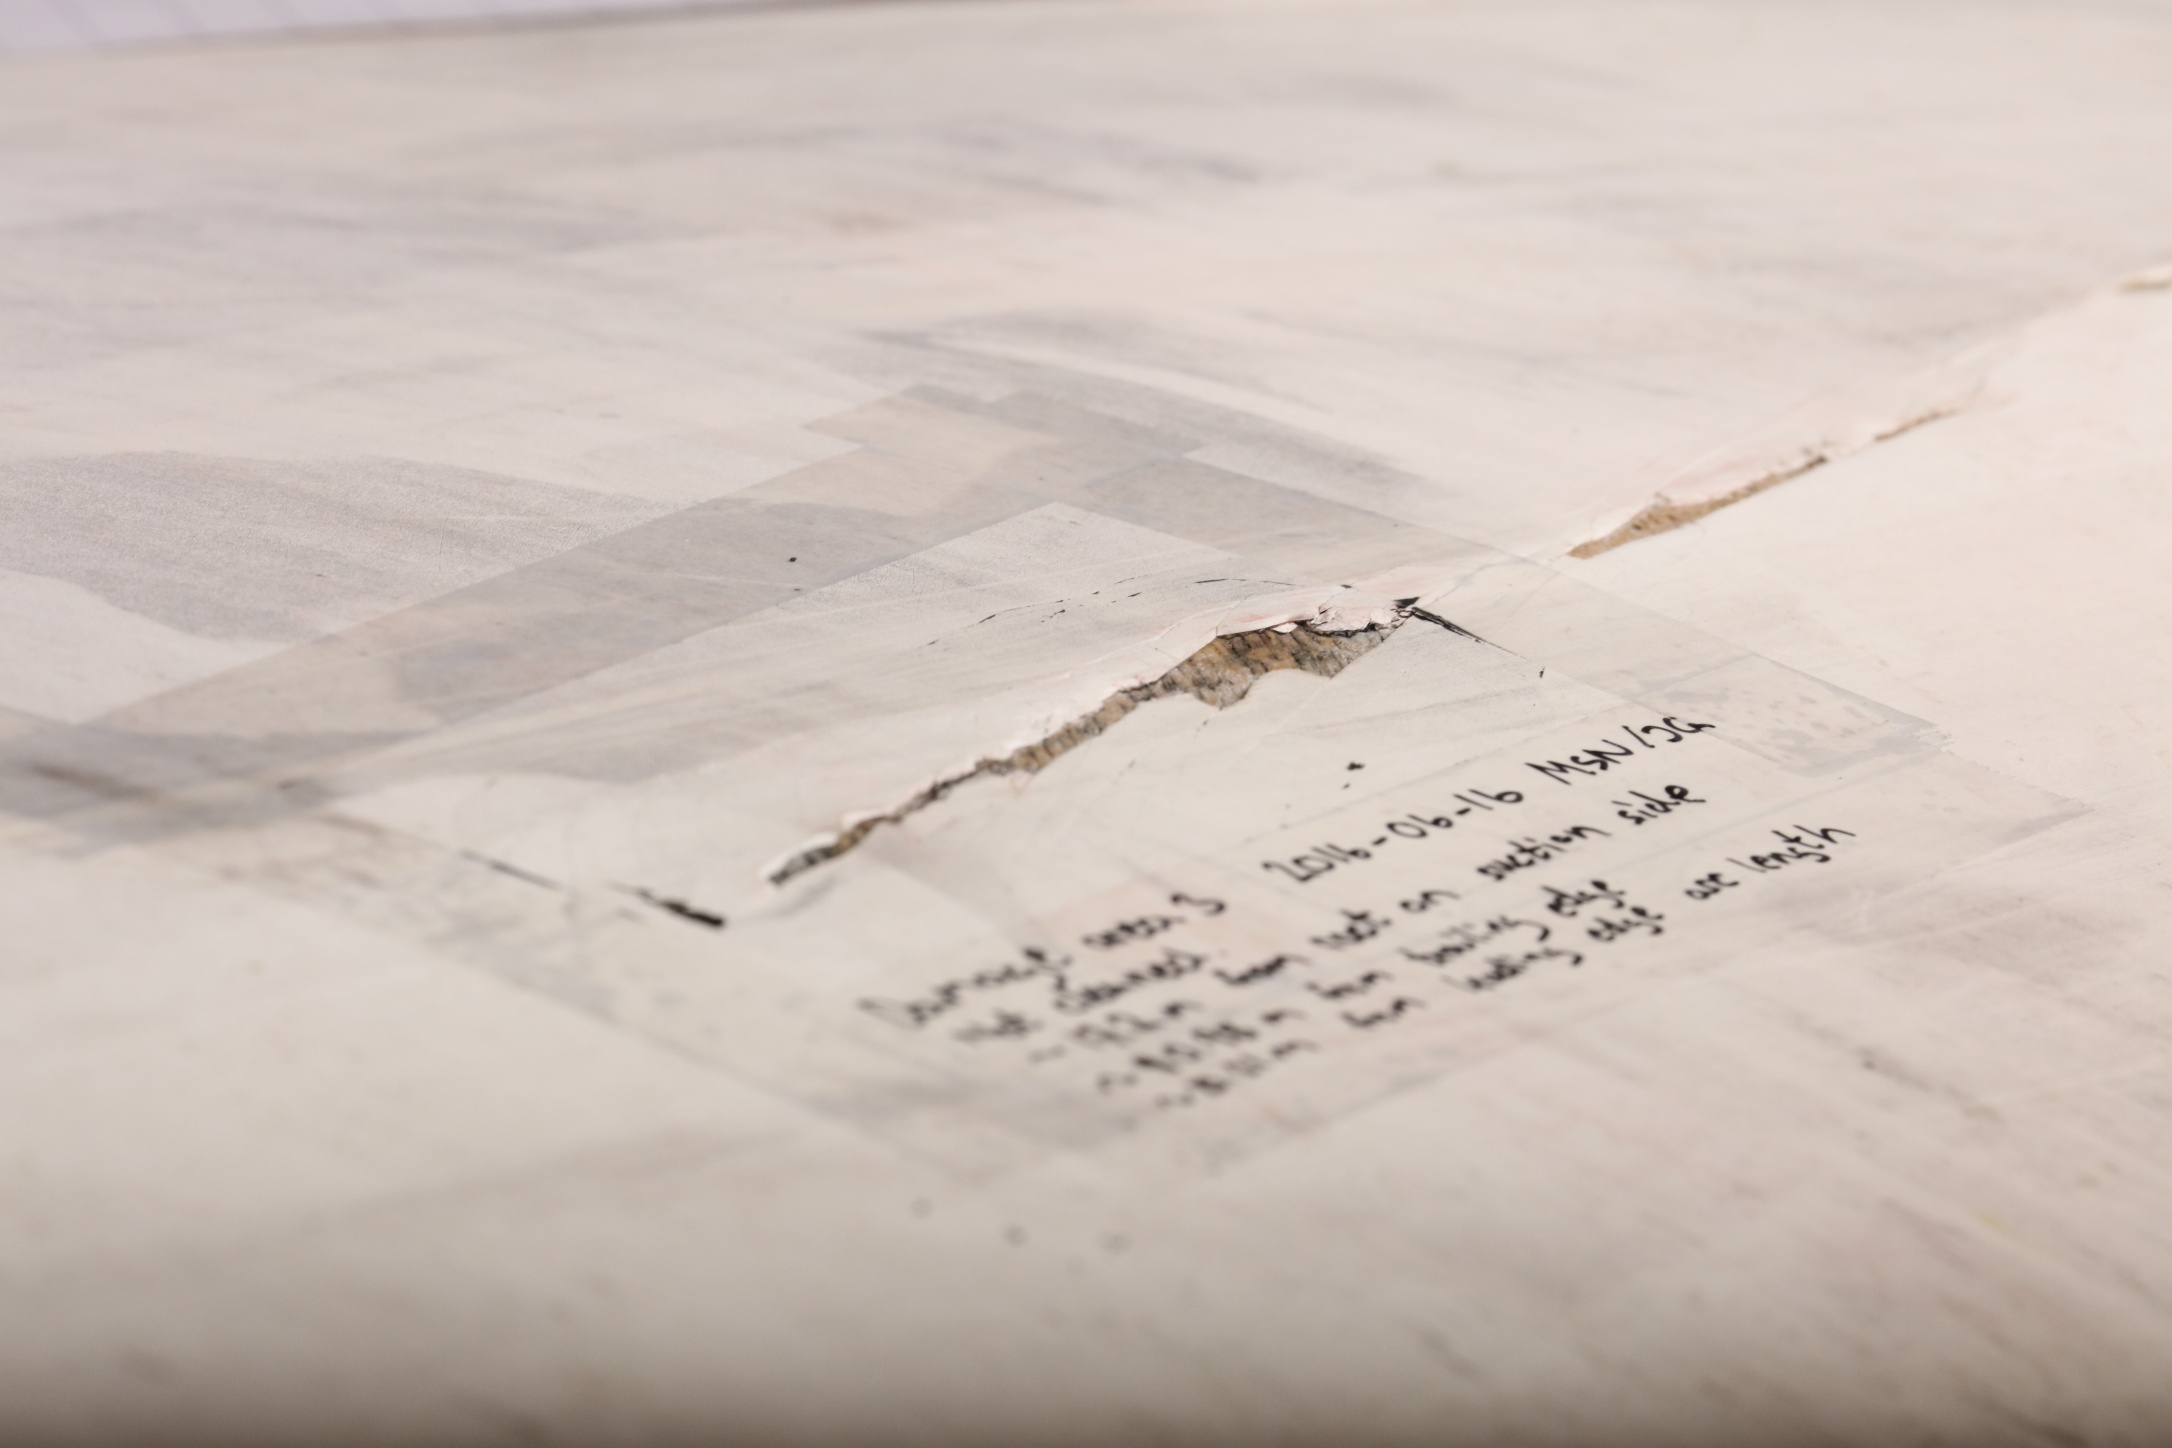 Damage area 3 2016-06-16 MSN/JG
Not cleaned.
from root on suction side
from trailing edge
from leading edge arc length